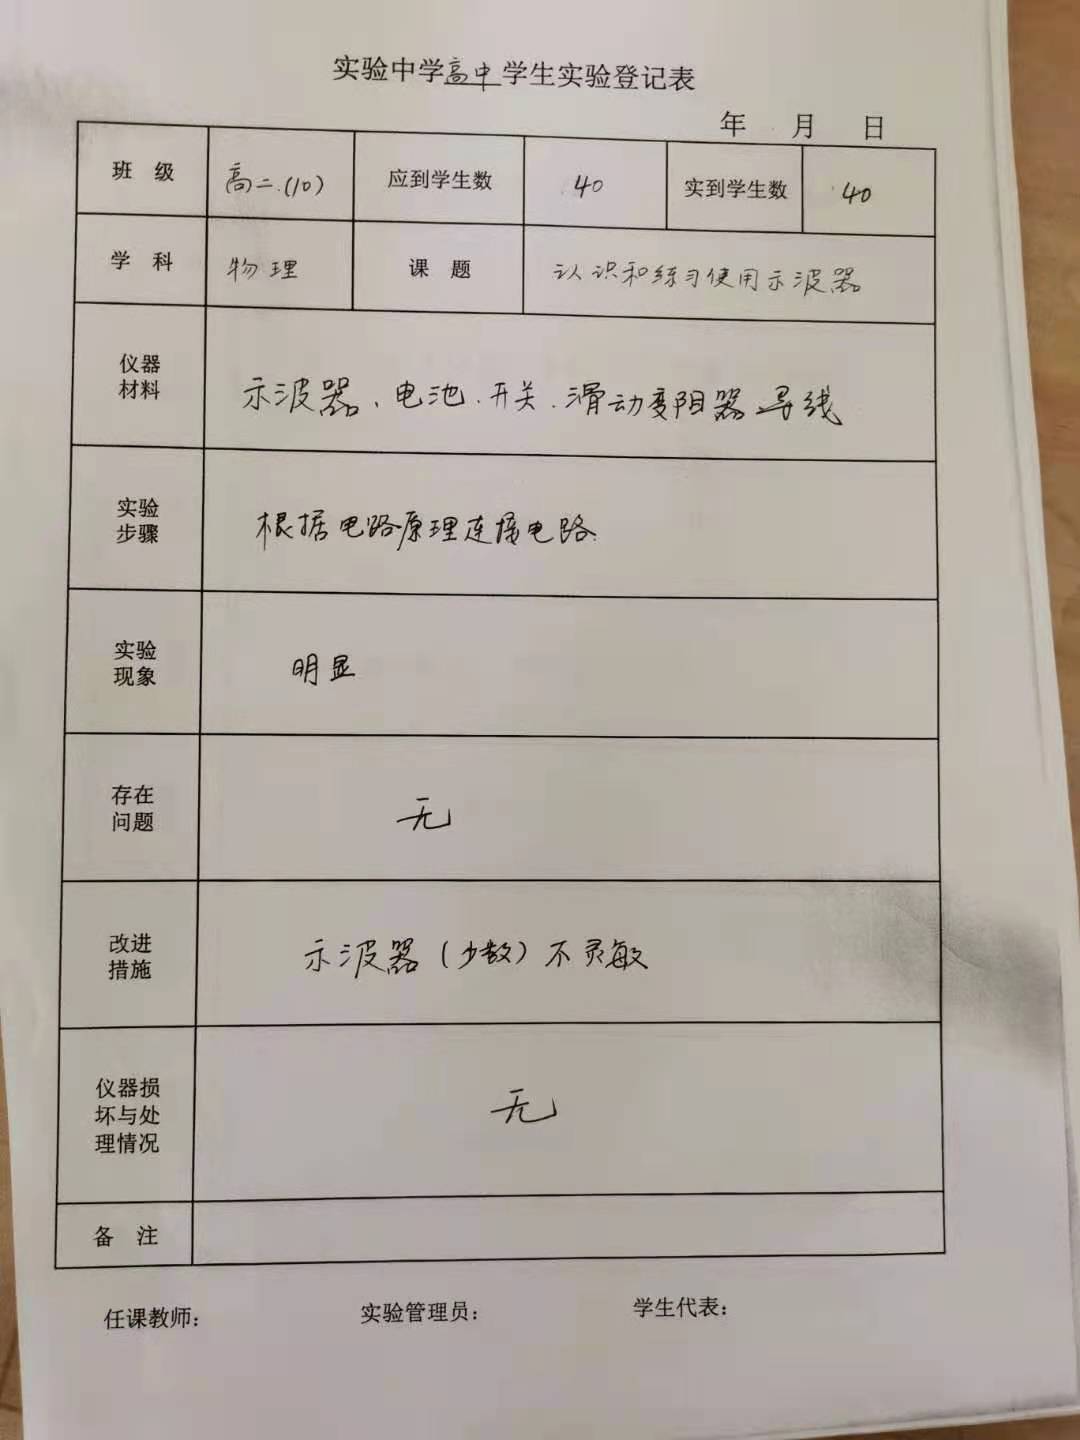 实验中学高中学生实验登记表
年 月 日
班 级 高二.(10) 应到学生数 40 实到学生数 40
学 科 物理 课 题 认识和练习使用示波器
仪器
材料
示波器、电池.开关.滑动变阻器 导线
实验
步骤
根据电路原理连接电路.
实验
现象
明显
存在
问题
无
改进
措施
示波器(少数)不灵敏
仪器损
坏与处
理情况
无
备 注
任课教师: 实验管理员: 学生代表: